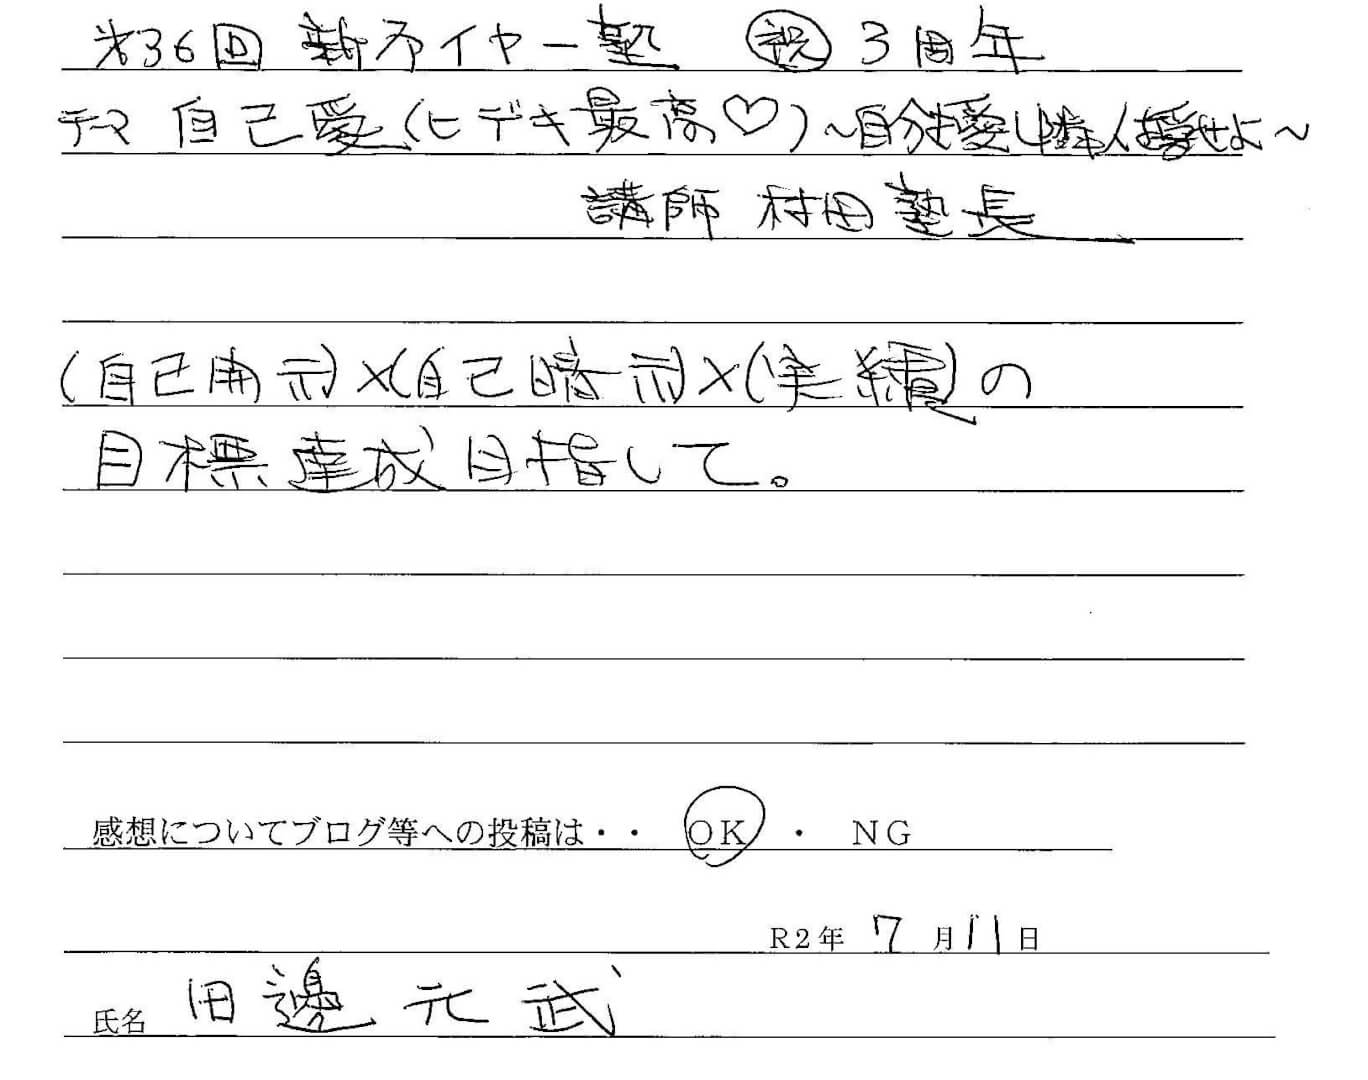 第36回 新ネイヤー塾 ㊗ 3周年
テーマ 自己愛(ヒデキ最高♡)~自分を愛し隣人を愛せよ~
講師 村田塾長
(自己開示)×(自己暗示)×(実績)の
目標達成目指して。
感想についてブログ等への投稿は・・ OK ・ NG
R2年 7月11日
氏名 田邊元武